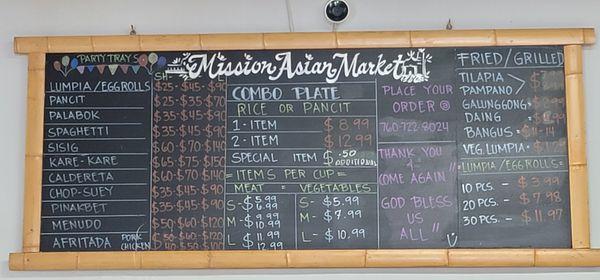 PARTY TRAYS
LUMPIA/EGGROLLS $25 - $45 - $90
PANCIT $25 $35 $70
PALABOK $35 $45 $90
SPAGHETTI $35 $45 $90
SISIG $60 - $70 - $140
KARE-KARE $65 - $75 - $150
CALDERETA $60 - $70 - $140
CHOP-SUEY $35 - $45 - $90
PINAKBET $35 - $45 - $90
MENUDO $50 - $60 - $120
AFRITADA PORK
CHICKEN
Mission Asian Market
COMBO PLATE
RICE OR PANCIT
1 - ITEM $8.99
2 - ITEM $12.99
SPECIAL ITEM $.50 ADDITIONAL
= ITEMS PER CUP =
MEAT = VEGETABLES
S - $5.99
$6.99
M - $8.99
$9.99
L - $11.99
12.99
S - $5.99
M - $7.99
L - $10.99
PLACE YOUR
ORDER @
760-722-8024
THANK YOU
COME AGAIN
GOD BLESS
US
ALL
FRIED/GRILLED
TILAPIA
PAMPANO
GALUNGGONG
DAING
BANGUS - 11-14
VEG. LUMPIA
=LUMPIA/EGGROLLS=
10 PCS. - $3.99
20 PCS. - $7.98
30 PCS. - $11.97